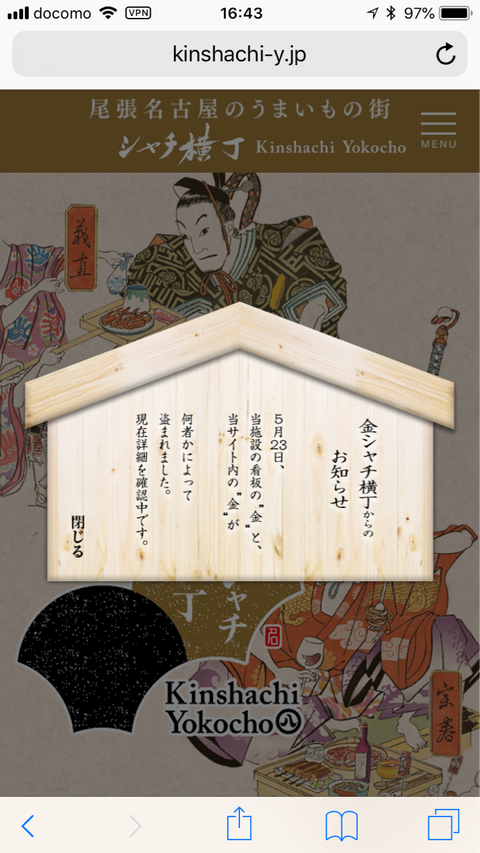 docomo VPN 16:43 97%
kinshachi-y.jp
尾張名古屋のうまいもの街
シャチ横丁 Kinshachi Yokocho
MENU
義直
金シャチ横丁からの
お知らせ
5月23日、
当施設の看板の“金”と、
当サイト内の“金”が
何者かによって
盗まれました。
現在詳細を確認中です。
閉じる
シャチ
丁
名
Kinshachi
Yokocho
宗春